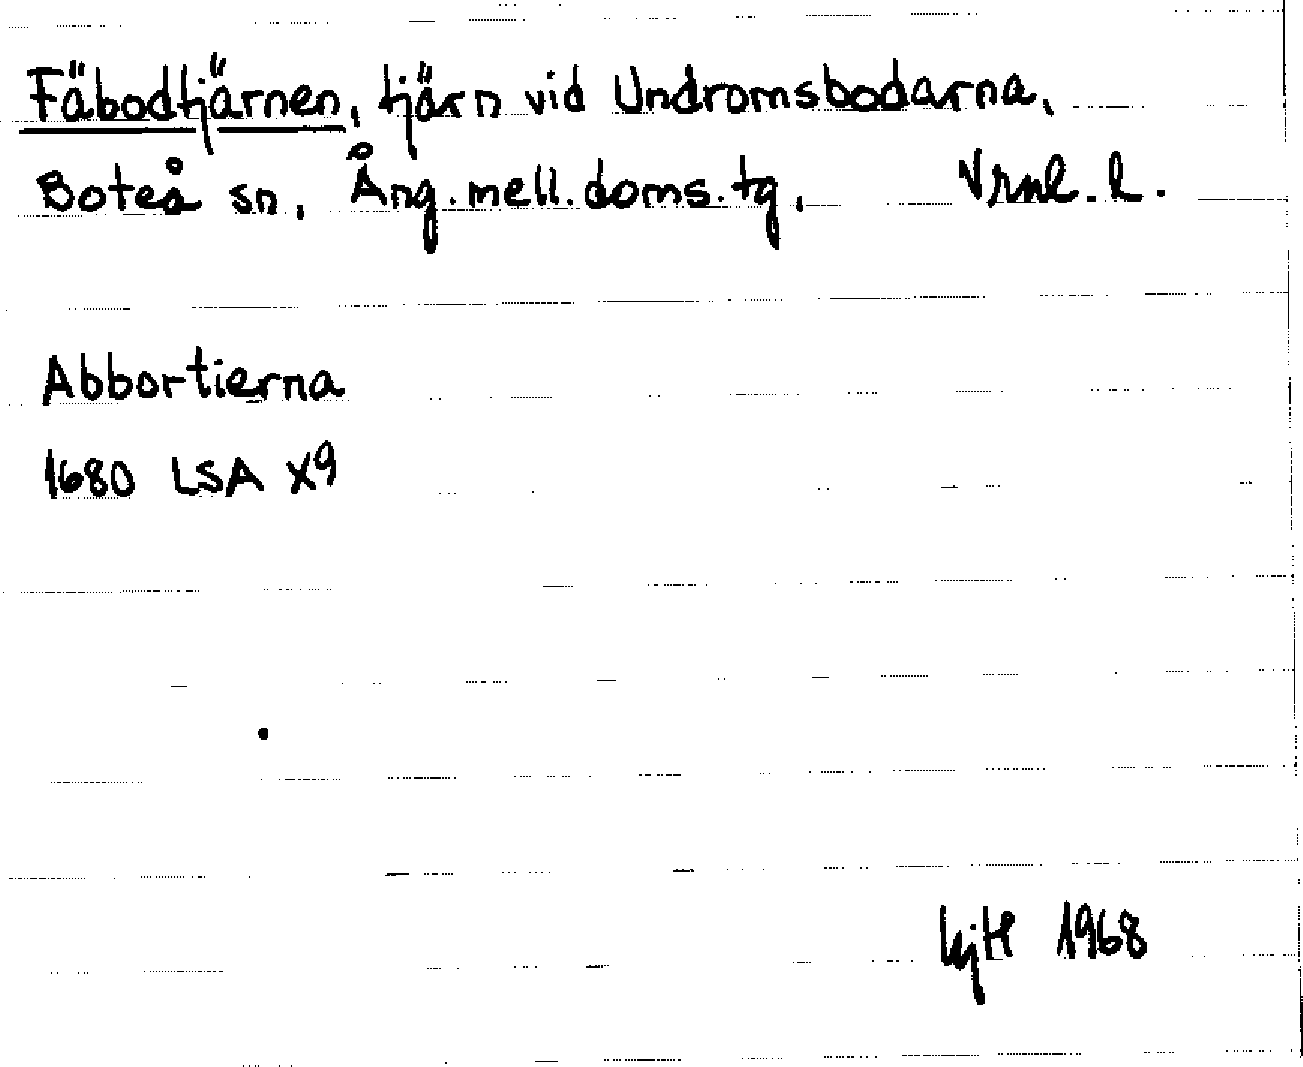 Fäbodtjärnen, tjärn vid Undromsbodarna,
Boteå sn, Ång.mell.doms.tg, Vrnl. l.
Abbortierna
1680 LSA X9
1968